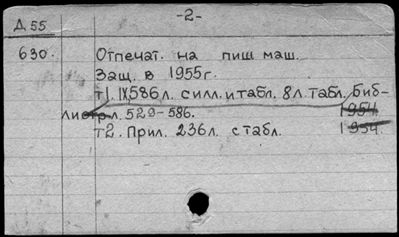 Д 55
-2-
630.
Отпечат. на пиш маш.
Защ. в 1955г.
т1. IX,586 л. силл. и табл. 8 л. табл. Биб-
лиогр л. 529-586. 1954
т2. Прил. 236 л. с табл. 1954.